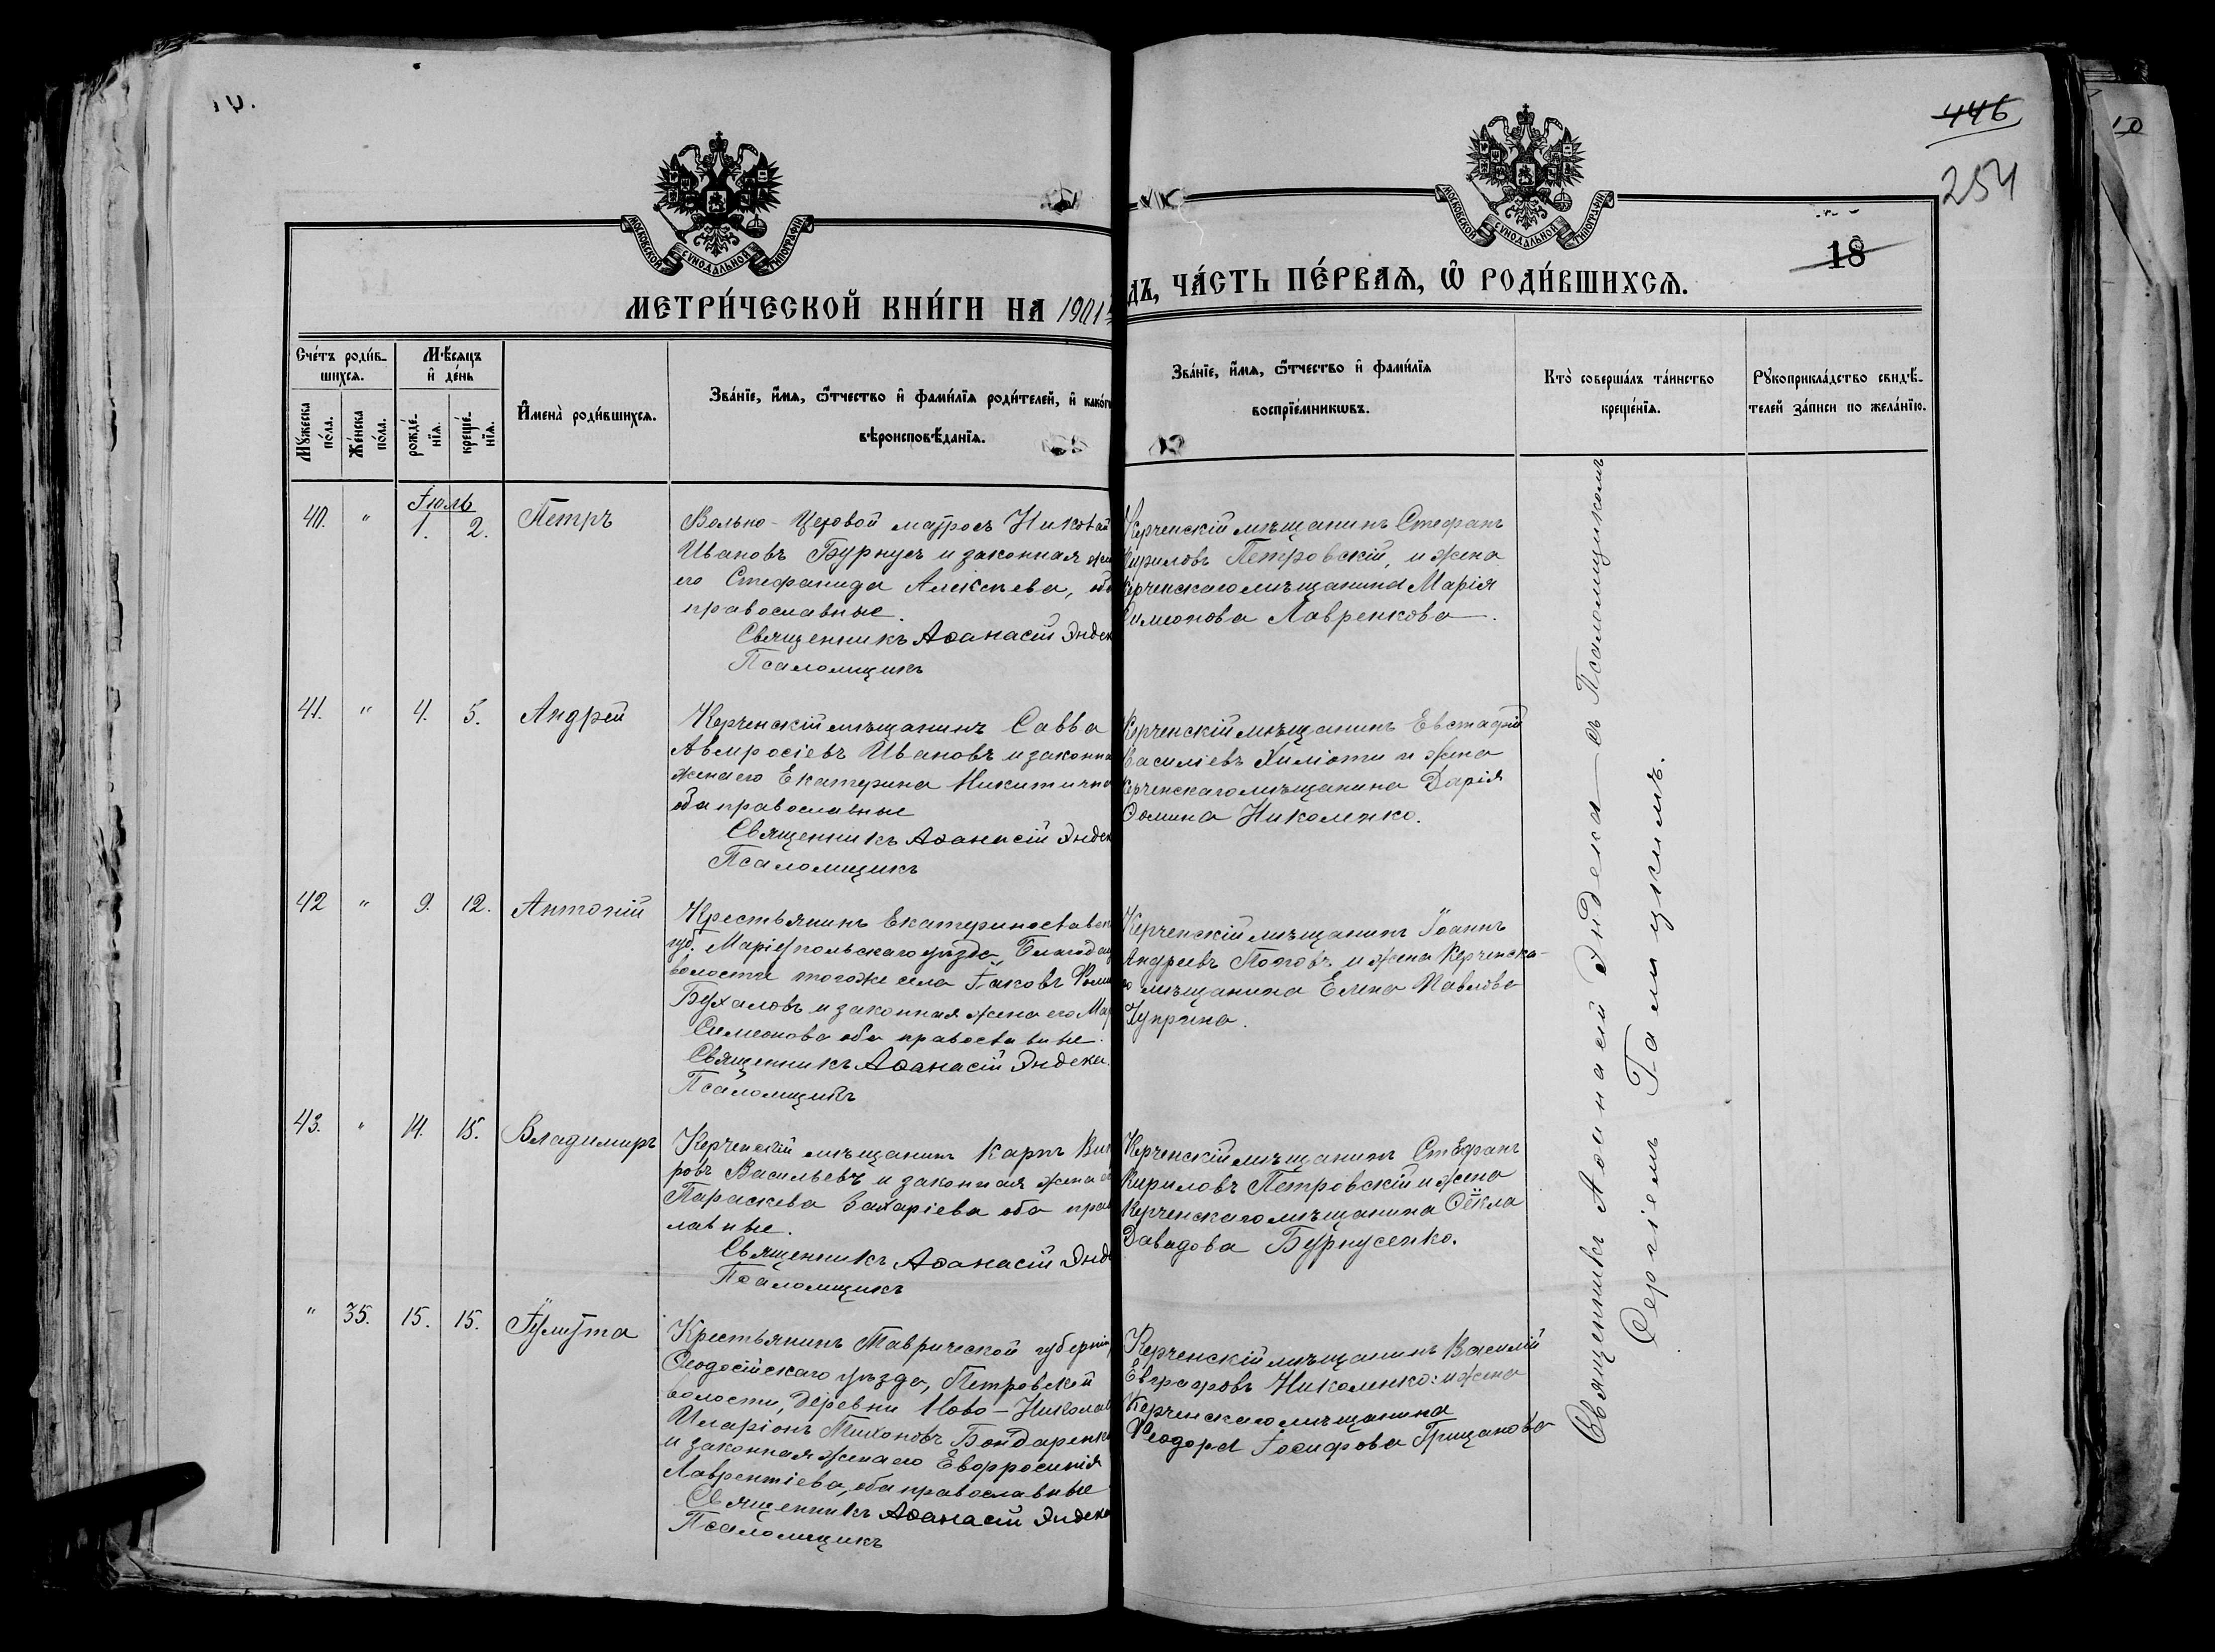 446
254
18
МОСКОВСКОЙ СУНОДАЛЬНОЙ ТИПОГРАФІИ
МОСКОВСКОЙ СУНОДАЛЬНОЙ ТИПОГРАФІИ
МЕТРИ́ЧЕСКОЙ КНИ́ГИ НА 1901
ДЪ, ЧА́СТЬ ПЕ́РВАѦ, Ѿ РОДИ́ВШИХСѦ.
Сче́тъ роди́в-
шихсѧ.
Мѣ́сѧцъ
и҆ де́нь
Мꙋ́жеска
по́ла.
Же́нска
по́ла.
рожде́-
нїѧ.
креще́-
нїѧ.
И҆мена̀ роди́вшихсѧ.
Зва́нїе, и҆́мѧ, ѻ҆́тчество и҆ фами́лїѧ роди́телей, и҆ како́г
вѣроисповѣ́данїѧ.
Зва́нїе, и҆́мѧ, ѻ҆́тчество и҆ фами́лїѧ
воспрїе́мникѡвъ.
Кто̀ соверша́лъ та́инство
креще́нїѧ.
Рꙋкоприкла́дство свидѣ́-
телей за́писи по жела́нїю.
Іюль
40. " 1. 2. Петръ
Вольно-Цеховой матросъ Николай
Ивановъ Бурнусъ и законная же
его Стефанида Алексѣева, об
православные.
Священникъ Аѳанасій Эндек
Псаломщикъ
Керченскій мѣщанинъ Стефанъ
Кириловъ Петровскій, и жена
Керченскаго мѣщанина Марія
Симеонова Лавренкова.
41. " 4. 5. Андрей
Керченскій мѣщанинъ Савва
Амвросіевъ Ивановъ и законна
жена его Екатерина Никитична
оба православные
Священникъ Аѳанасій Эндек
Псаломщикъ
Керченскій мѣщанинъ Евстафій
Василіевъ Химіоти и жена
Керченскаго мѣщанина Дарія
Ѳомина Николенко.
42 " 9. 12. Антоній
Крестьянинъ Екатеринославск
губ. Маріупольскаго уѣзда Благодат
волости тогоже села Іаковъ Фоми
Бухаловъ и законная жена его Мар
Симеонова оба православные.
Священникъ Аѳанасій Эндека.
Псаломщикъ
Керченскій мѣщанинъ Іоаннъ
Андреевъ Поповъ и жена Керченска-
го мѣщанина Елена Павлова
Чуприна.
43. " 14. 15. Владимиръ
Керченскій мѣщанинъ Карпъ Вик
ровъ Васильевъ и законная жена е
Параскева Захаріева оба прав
лавные.
Священникъ Аѳанасій Энде
Псаломщикъ
Керченскій мѣщанинъ Стефанъ
Кириловъ Петровскій и жена
Керченскаго мѣщанина Ѳекла
Давидова Бурнусенко.
" 35. 15. 15. Іулитта
Крестьянинъ Таврической губерніи,
Ѳеодосійскаго уѣзда, Петровской
волости, деревни Ново-Никола
Иларіонъ Тихоновъ Бондаренк
и законная жена его Евфросинія
Лаврентіева, оба православные
Священникъ Аѳанасій Эндека
Псаломщикъ
Керченскій мѣщанинъ Василій
Евграфовъ Николенко: и жена
Керченскаго мѣщанина
Ѳеодора Іосифова Грицанова
Священникъ Аѳанасій Эндека съ Псаломщикомъ
Сергіемъ Гамицкимъ.